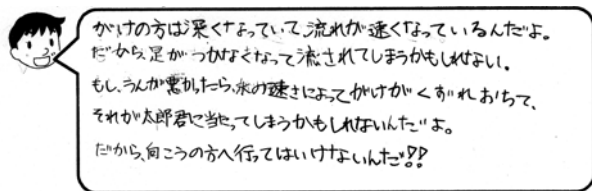 がけの方は深くなっていて、流れが速くなっているんだよ。
だから、足がつかなくなって流されてしまうかもしれない。
もし、うんが悪かったら、水の速さによってがけがくずれおちて、
それが太郎君に当たってしまうかもしれないんだよ。
だから、向こうの方へ行ってはいけないんだ!!